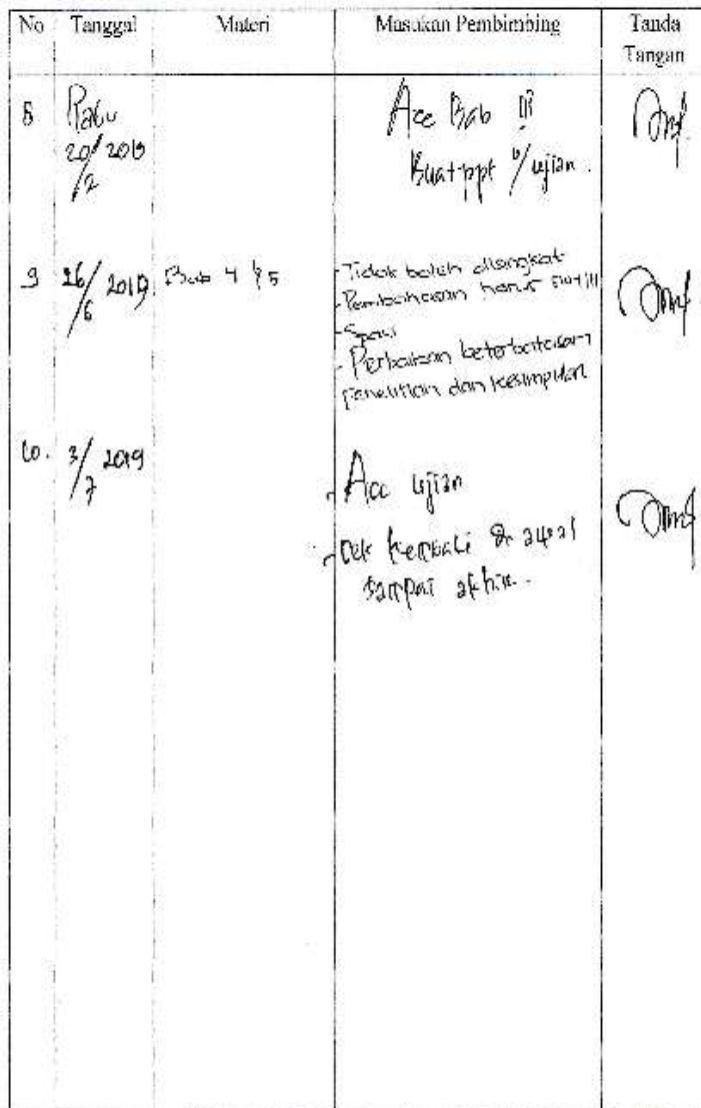 No Tanggal Materi Masukan Pembimbing Tanda Tangan
8 Rabu
20/2 2019
Acc Bab III
Buat ppt u/ ujian.
9 26/6 2019 Bab 4 & 5
- Tidak boleh disingkat
- Pembahasan harus
- Spasi
- Perbaikan keterbatasan
penelitian dan kesimpulan
10. 3/7 2019
- Acc ujian
- Cek kembali dr awal
sampai akhir.